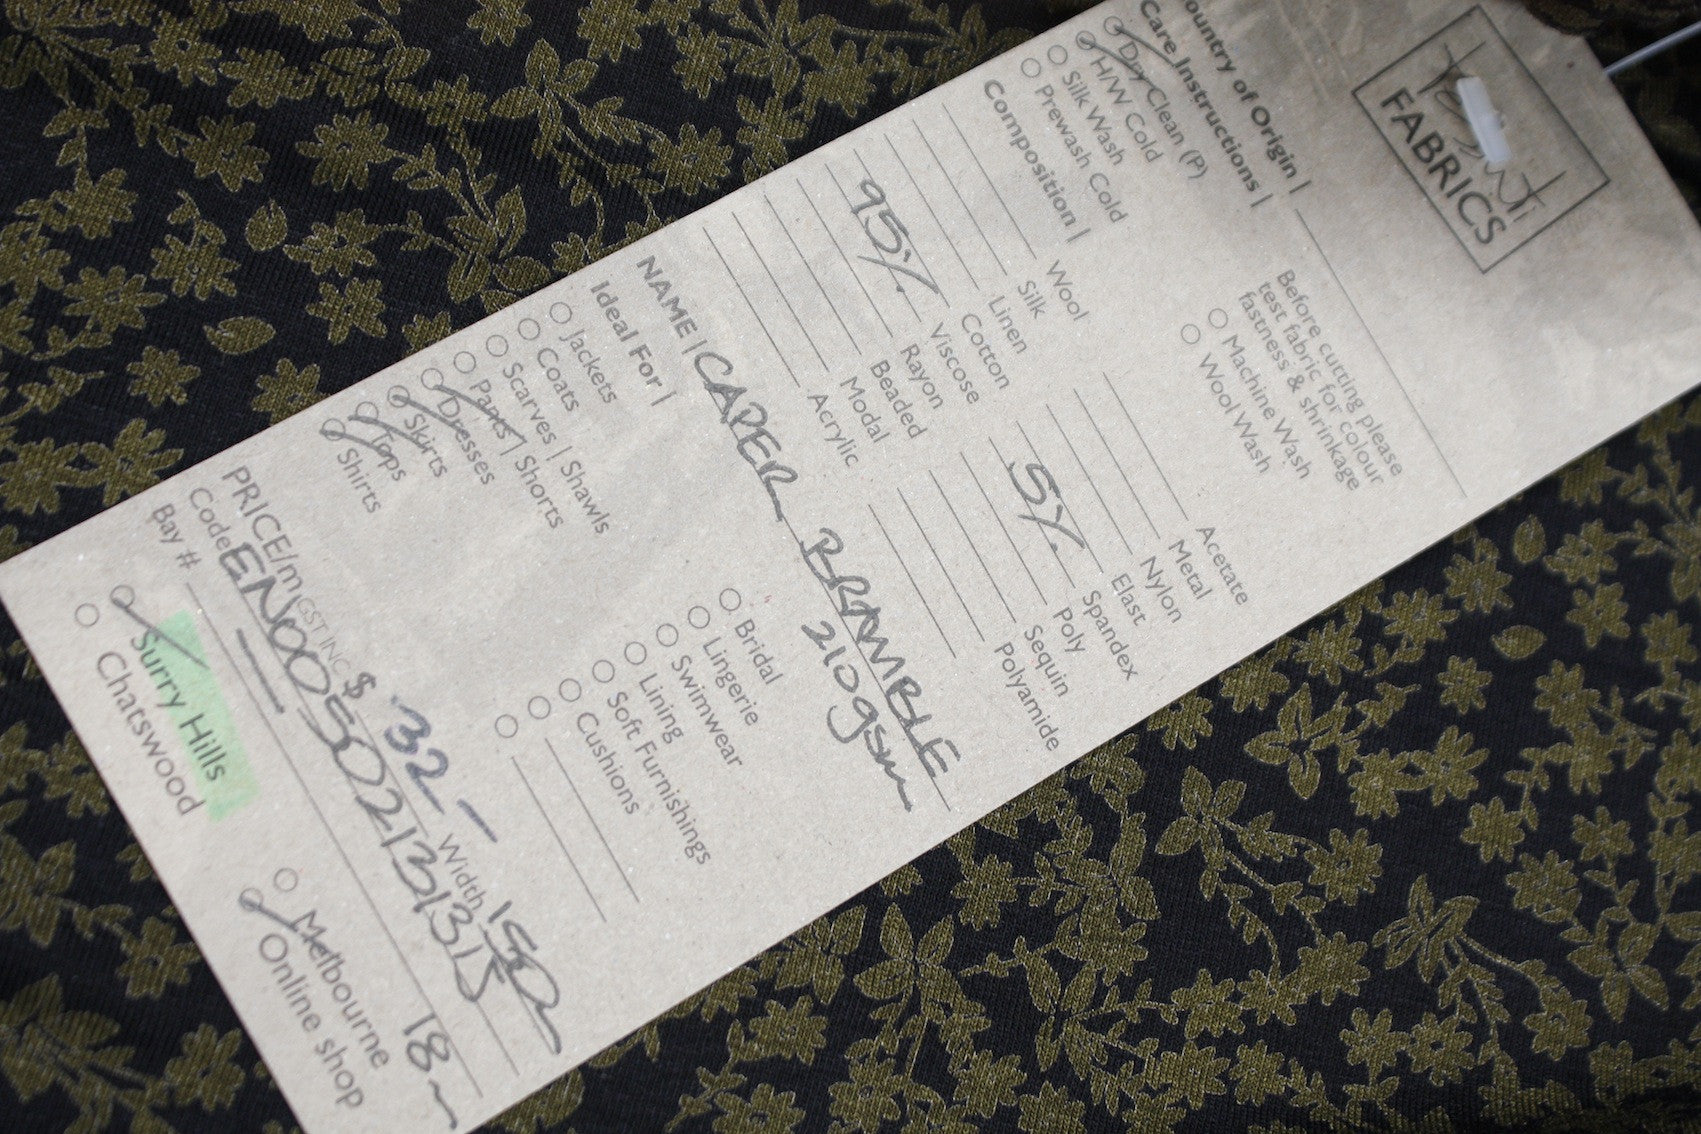 Tessuti
FABRICS
Country of Origin |
Care Instructions |
Dry Clean (P)
H/W Cold
Silk Wash
Prewash Cold
Before cutting please
test fabric for colour
fastness & shrinkage
Machine Wash
Wool Wash
Composition |
Wool
Silk
Linen
Cotton
95% Viscose
Rayon
Beaded
Modal
Acrylic
Acetate
Metal
Nylon
Elast
5% Spandex
Poly
Sequin
Polyamide
NAME | CAPER BRAMBLE
210gsm
Ideal For |
Jackets
Coats
Scarves | Shawls
Pants | Shorts
Dresses
Skirts
Tops
Shirts
Bridal
Lingerie
Swimwear
Lining
Soft Furnishings
Cushions
PRICE/m GST INC $ 32- Width 150m
Code EN00502131315
Bay # — 18m
Surry Hills
Chatswood
Melbourne
Online shop